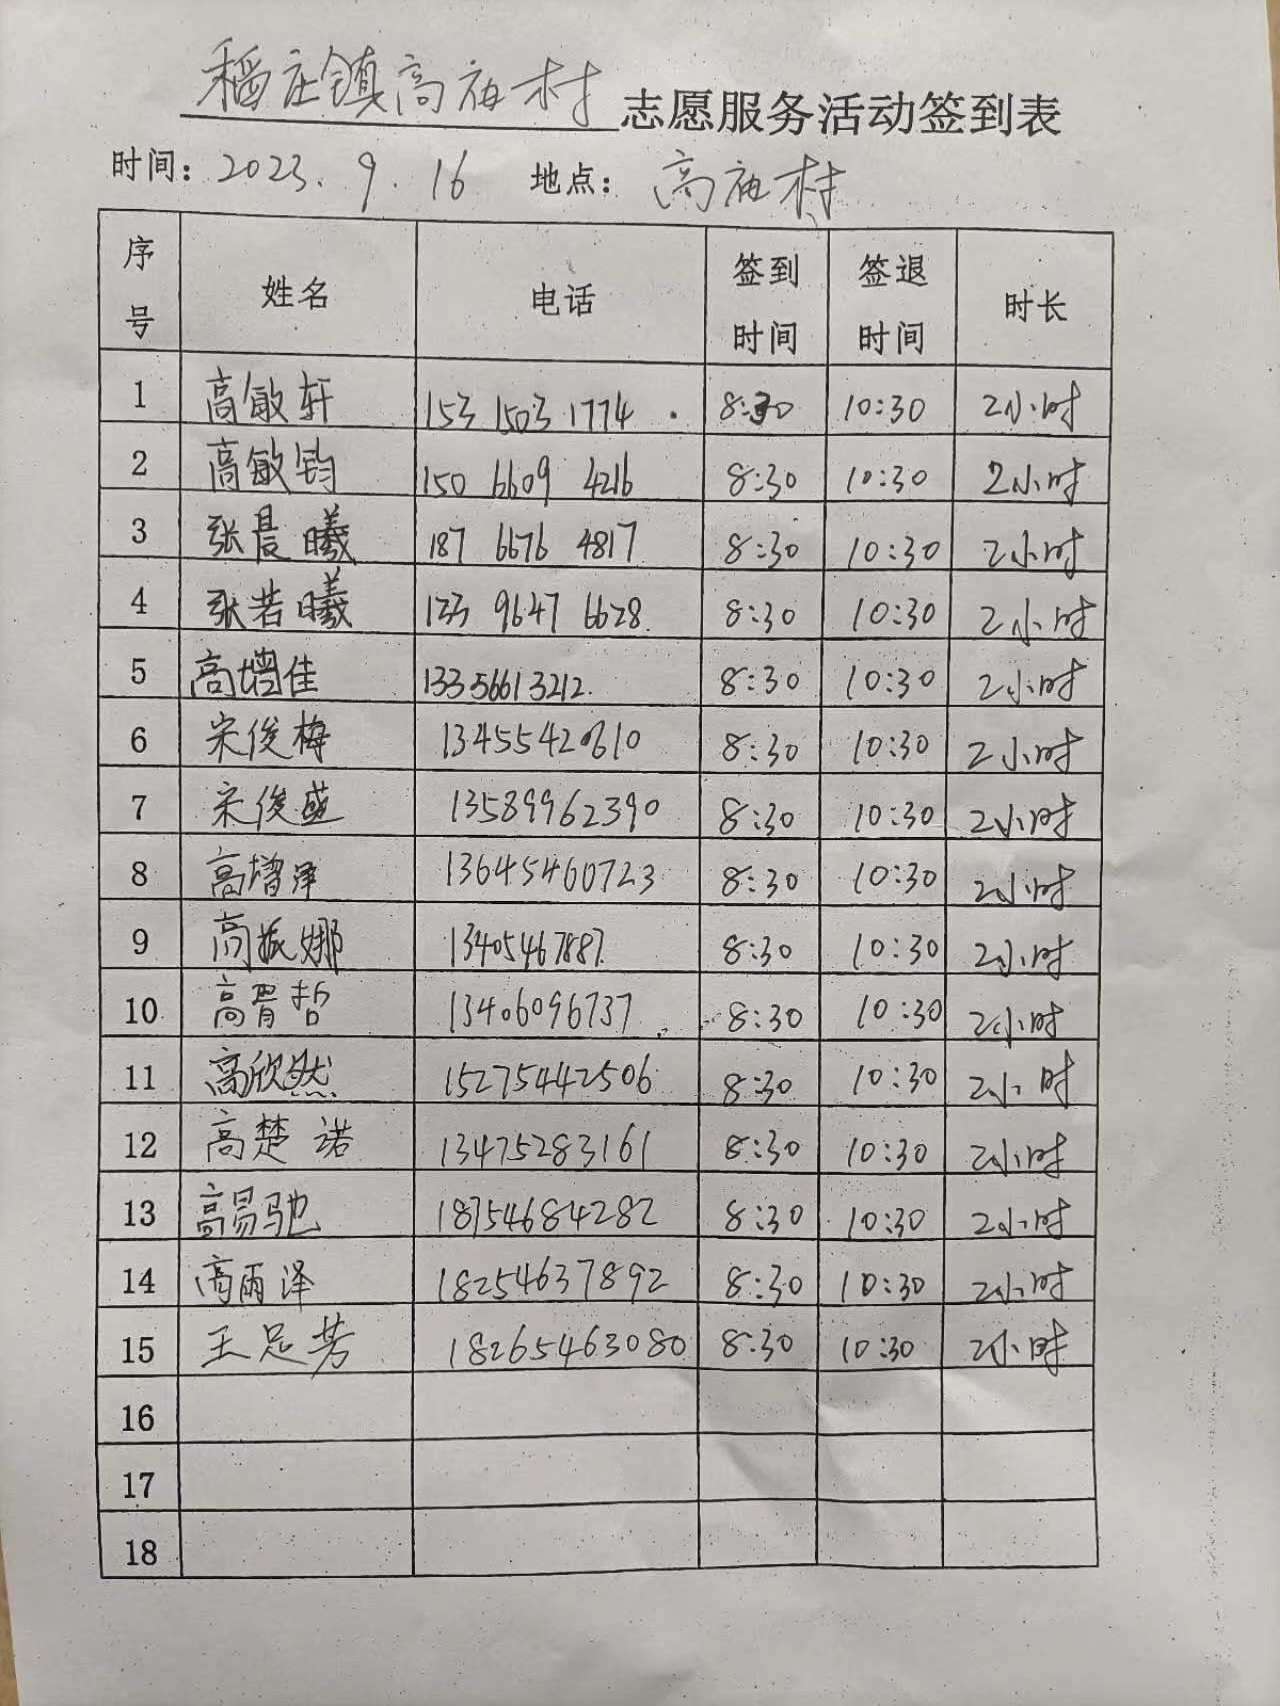 稻庄镇高庙村志愿服务活动签到表
时间：2023.9.16 地点：高庙村
序号 姓名 电话 签到时间 签退时间 时长
1 高敏轩 153 1503 1774 8:30 10:30 2小时
2 高敏钧 150 6609 4216 8:30 10:30 2小时
3 张晨曦 187 6676 4817 8:30 10:30 2小时
4 张若曦 133 9647 6628 8:30 10:30 2小时
5 高增佳 13356613212 8:30 10:30 2小时
6 宋俊梅 13455420610 8:30 10:30 2小时
7 宋俊盛 13589962390 8:30 10:30 2小时
8 高增泽 13645460723 8:30 10:30 2小时
9 高振娜 13405467887 8:30 10:30 2小时
10 高胥哲 13406096737 8:30 10:30 2小时
11 高欣然 15275442506 8:30 10:30 2小时
12 高楚诺 13475283161 8:30 10:30 2小时
13 高易驰 18754684282 8:30 10:30 2小时
14 高雨泽 18254637892 8:30 10:30 2小时
15 王足芳 18265463080 8:30 10:30 2小时
16
17
18